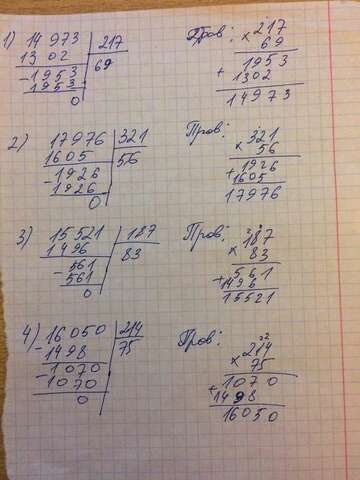 1) 14973 217 Пров: × 217
1302 69 69
- 1953 1953
1953 + 1302
0 14973
2) 17976 321 Пров: × 321
1605 56 56
- 1926 1926
1926 + 1605
0 17976
3) 15521 187 Пров: × 187
1496 83 83
- 561 561
561 + 1496
0 15521
4) 16050 214 Пров: × 214
- 1498 75 75
- 1070 1070
1070 + 1498
0 16050